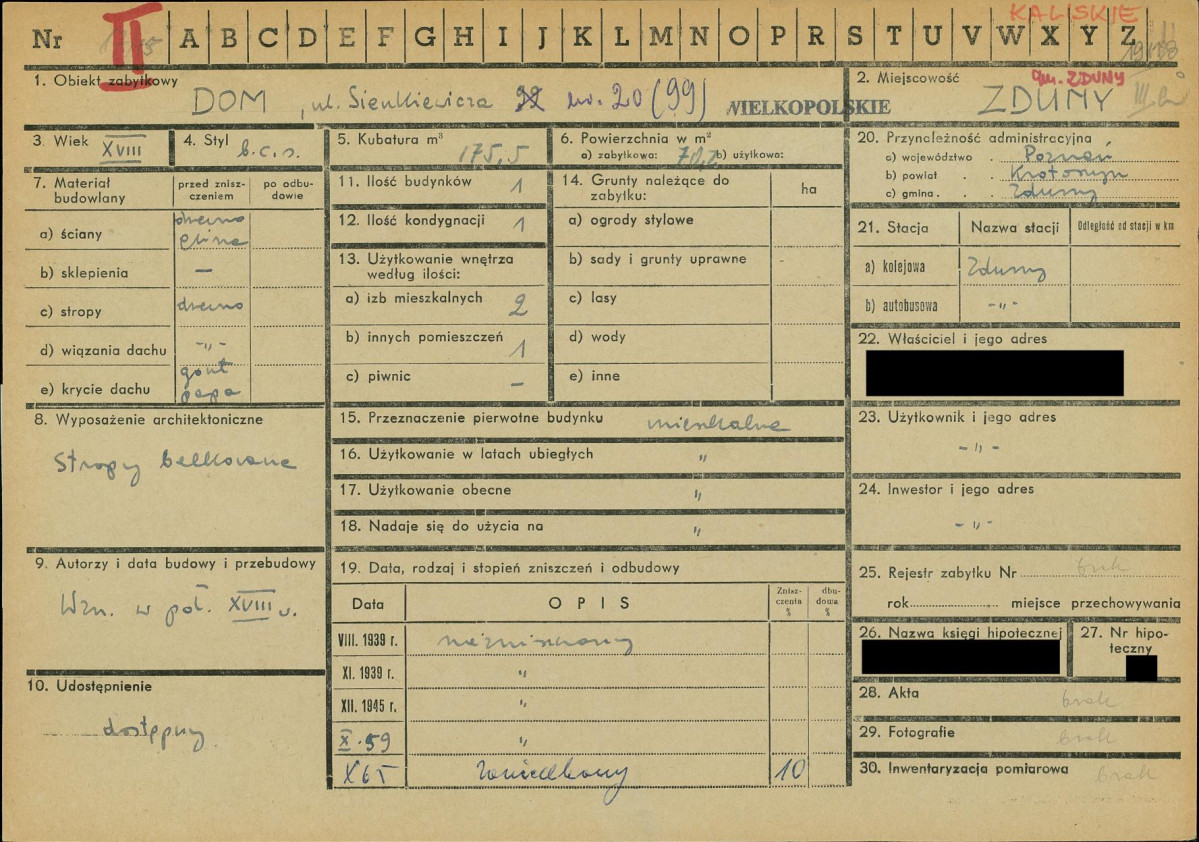 Nr II A B C D E F G H I J K L M N O P R S T U V W X Y Z
KALISKIE
1. Obiekt zabytkowy
DOM, ul. Sienkiewicza nr. 20 (99)
WIELKOPOLSKIE
2. Miejscowość
gm. ZDUNY
ZDUNY
3. Wiek XVIII
4. Styl b.c.s.
5. Kubatura m³ 175,5
6. Powierzchnia w m²
a) zabytkowa: b) użytkowa:
7. Materiał budowlany
przed zniszczeniem
po odbudowie
a) ściany drewno glina
b) sklepienia —
c) stropy drewno
d) wiązania dachu -„-
e) krycie dachu gont papa
8. Wyposażenie architektoniczne
Stropy belkowane
9. Autorzy i data budowy i przebudowy
Wzn. w poł. XVIII w.
10. Udostępnienie
dostępny
11. Ilość budynków 1
12. Ilość kondygnacji 1
13. Użytkowanie wnętrza według ilości:
a) izb mieszkalnych 2
b) innych pomieszczeń 1
c) piwnic -
14. Grunty należące do zabytku:
ha
a) ogrody stylowe
b) sady i grunty uprawne -
c) lasy
d) wody
e) inne
15. Przeznaczenie pierwotne budynku mieszkalne
16. Użytkowanie w latach ubiegłych „
17. Użytkowanie obecne „
18. Nadaje się do użycia na „
19. Data, rodzaj i stopień zniszczeń i odbudowy
Data OPIS Zniszczenia % dbudowa %
VIII. 1939 r. niezniszczony
XI. 1939 r. „
XII. 1945 r. „
X. 59 „
X 65 zaniedbany 10
20. Przynależność administracyjna
a) województwo . Poznań
b) powiat . . Krotoszyn
c) gmina . . Zduny
21. Stacja Nazwa stacji Odległość od stacji w km
a) kolejowa Zduny
b) autobusowa -„-
22. Właściciel i jego adres
23. Użytkownik i jego adres
-„-
24. Inwestor i jego adres
-„-
25. Rejestr zabytku Nr brak
rok miejsce przechowywania
26. Nazwa księgi hipotecznej
27. Nr hipoteczny
28. Akta brak
29. Fotografie brak
30. Inwentaryzacja pomiarowa brak